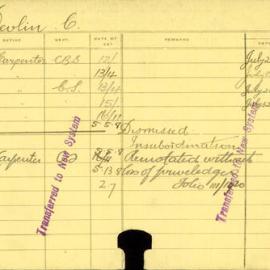 Devlin C.
DATE OF
REMARKS
Carpenter CBS 12/- July 2
" 13/4 July
" C.S. 13/4 July
15/- July 2
16/4
5 5 8 Dismissed
Insubordination
Carpenter 5 5 8 Reinstated without
5 13 8 loss of priveledges
2 7 Folio 111/1920
Transferred to New System
Transferred to New System